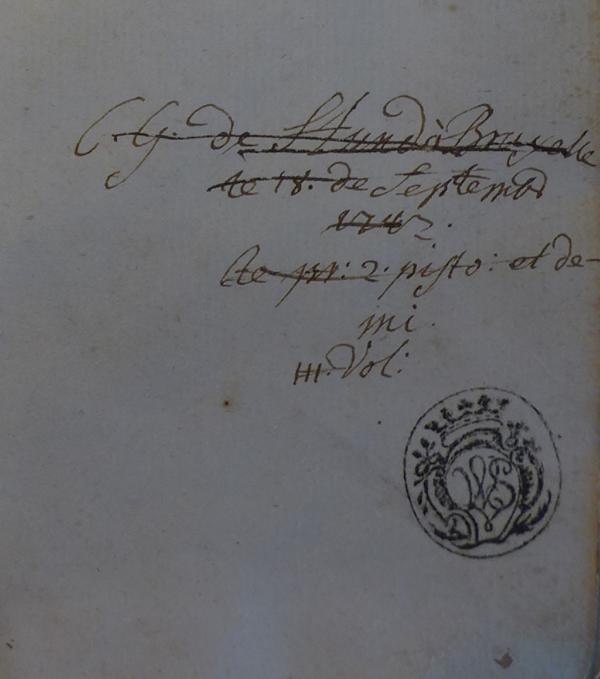 C. G. de Stund à Bruxelle
le 18. de Septembr
1742.
le pr: 2. pisto: et de-
mi.
III. Vol: